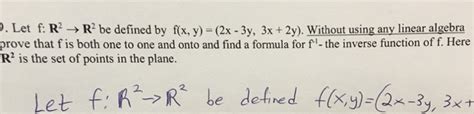 9. Let f: R² → R² be defined by f(x, y) = (2x - 3y, 3x + 2y). Without using any linear algebra
prove that f is both one to one and onto and find a formula for f⁻¹- the inverse function of f. Here
R² is the set of points in the plane.
Let f: R²→R² be defined f(x,y)=(2x-3y, 3x+